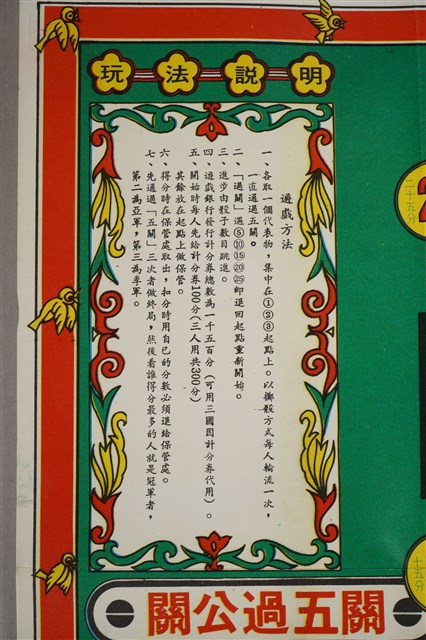 玩法說明
遊戲方法
一、各取一個代表物，集中在①②③起點上。以擲骰方式每人輪流一次，
一直通過五關。
二、「過關」遇⑤⑩⑮⑳㉕即退回起點重新開始。
三、進步由骰子數目跳進。
四、遊戲銀行發行計分券總數為一千五百分（可用三國因計分券代用）。
五、開始時每人先給計分券100分（三人用共300分）
其餘放在起點上做保管。
六、得分時在保管處取出，扣分時用自己的分數必須退給保管處。
七、先通過「五關」三次者做終局，然後看誰得分最多的人就是冠軍者，
第二為亞軍，第三為季軍。
二十五分
2
十五分
關公過五關